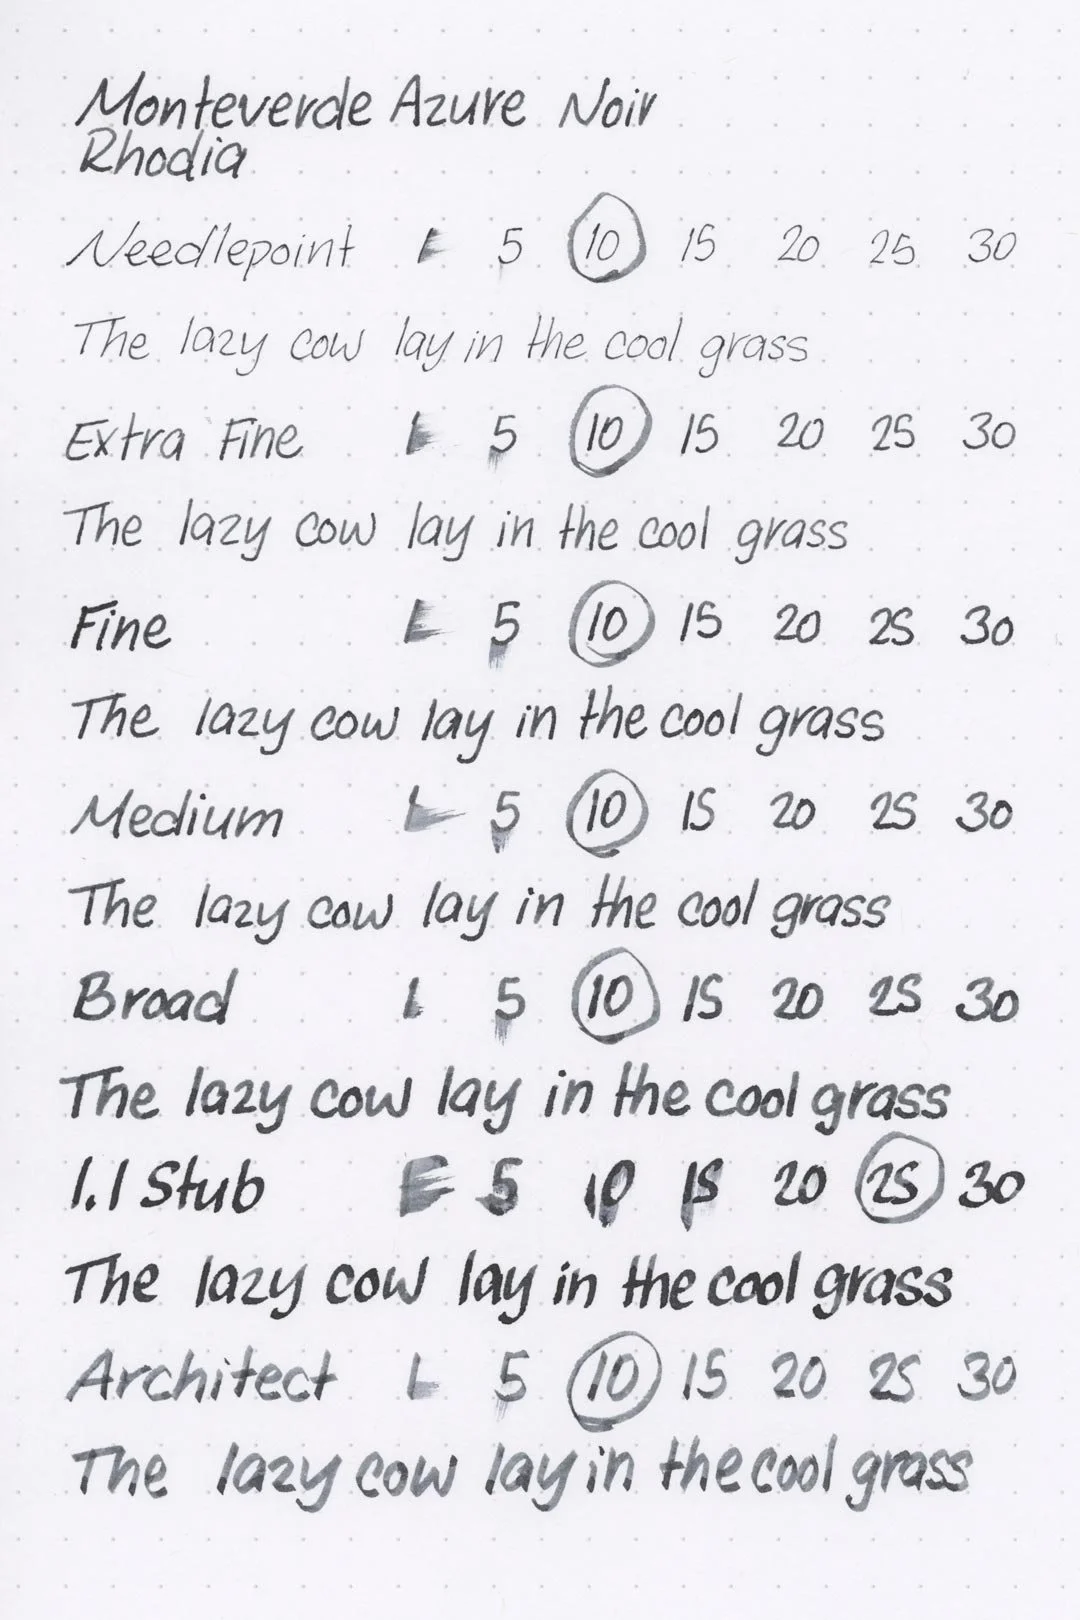 Monteverde Azure Noir
Rhodia
Needlepoint 1 5 10 15 20 25 30
The lazy cow lay in the cool grass
Extra Fine 1 5 10 15 20 25 30
The lazy cow lay in the cool grass
Fine 1 5 10 15 20 25 30
The lazy cow lay in the cool grass
Medium 1 5 10 15 20 25 30
The lazy cow lay in the cool grass
Broad 1 5 10 15 20 25 30
The lazy cow lay in the cool grass
1.1 Stub 1 5 10 15 20 25 30
The lazy cow lay in the cool grass
Architect 1 5 10 15 20 25 30
The lazy cow lay in the cool grass